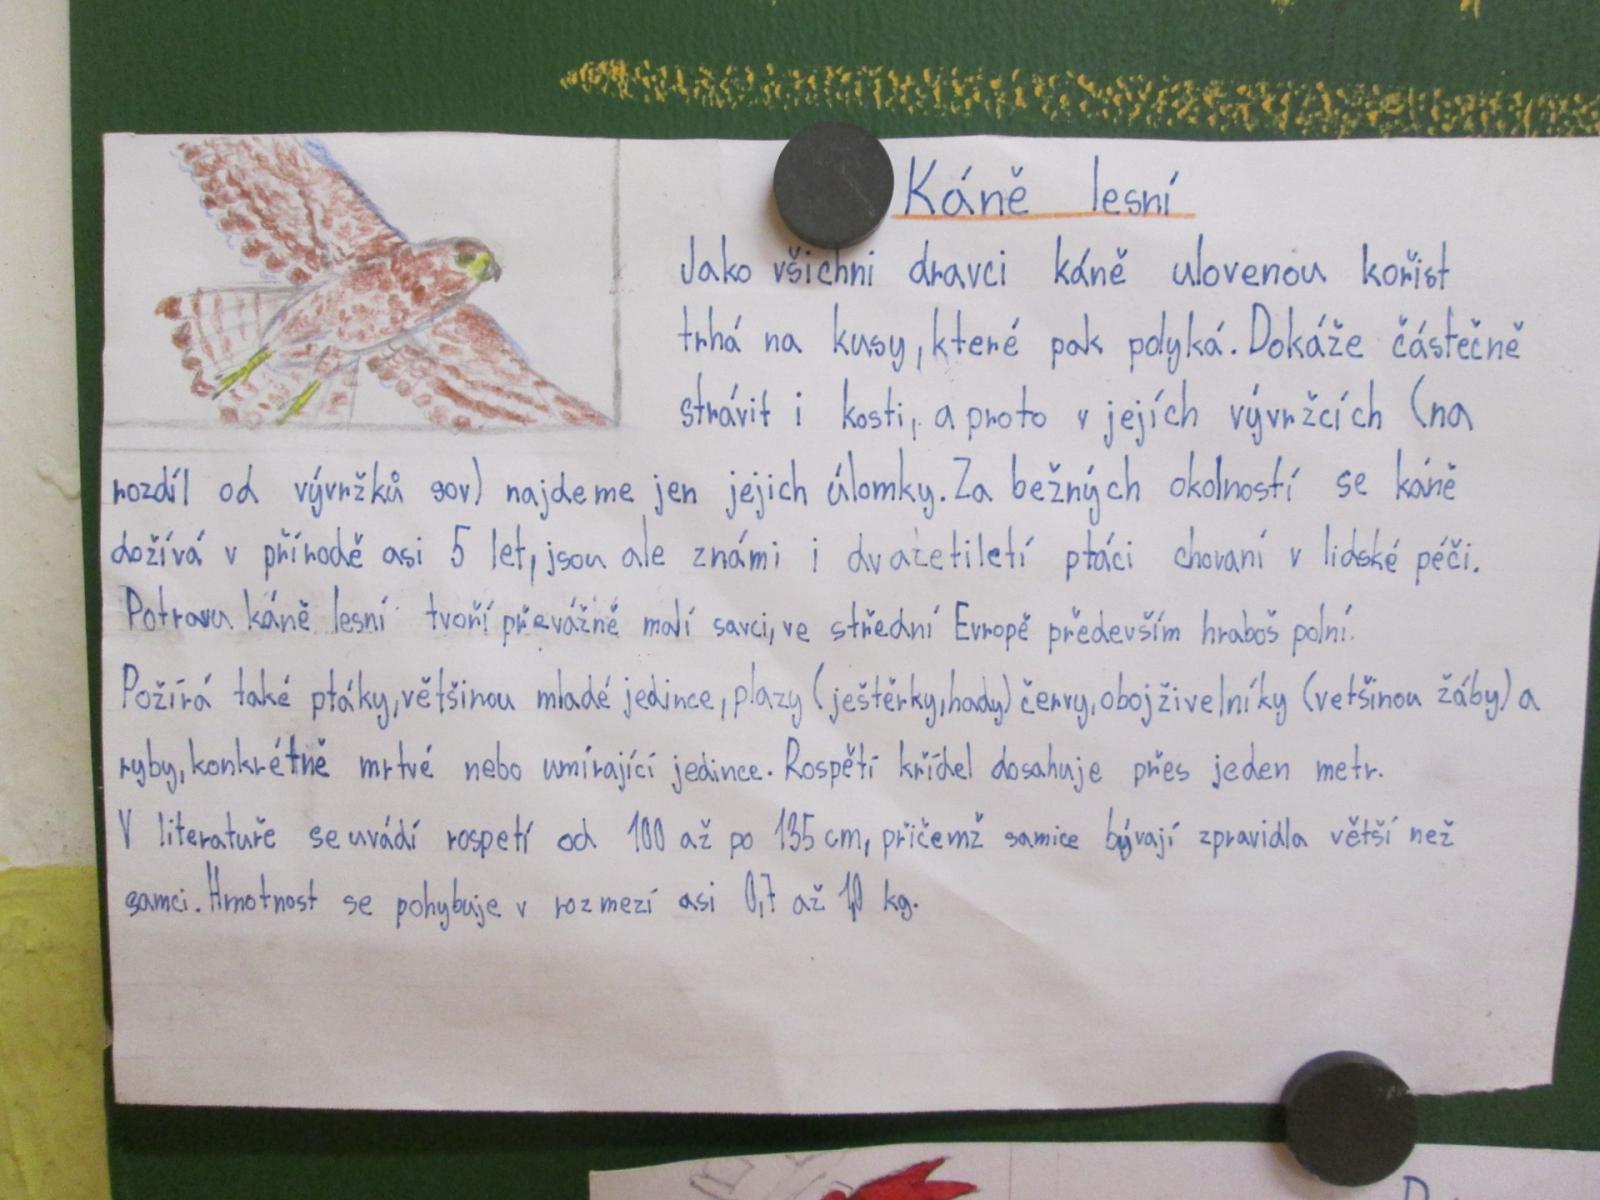 Káně lesní
Jako všichni dravci káně ulovenou kořist
trhá na kusy, které pak polyká. Dokáže částečně
strávit i kosti, a proto v jejích vývržcích (na
rozdíl od vývržků sov) najdeme jen jejich úlomky. Za bežných okolností se káně
dožívá v přírodě asi 5 let, jsou ale známi i dvacetiletí ptáci chovaní v lidské péči.
Potravu káně lesní tvoří převážně malí savci, ve střední Evropě především hraboš polní.
Požírá také ptáky, většinou mladé jedince, plazy (ještěrky, hady) červy, obojživelníky (vetšinou žáby) a
ryby, konkrétně mrtvé nebo umírající jedince. Rospětí křídel dosahuje přes jeden metr.
V literatuře se uvádí rospetí od 100 až po 135 cm, přičemž samice bývají zpravidla větší než
samci. Hmotnost se pohybuje v rozmezí asi 0,7 až 1,0 kg.